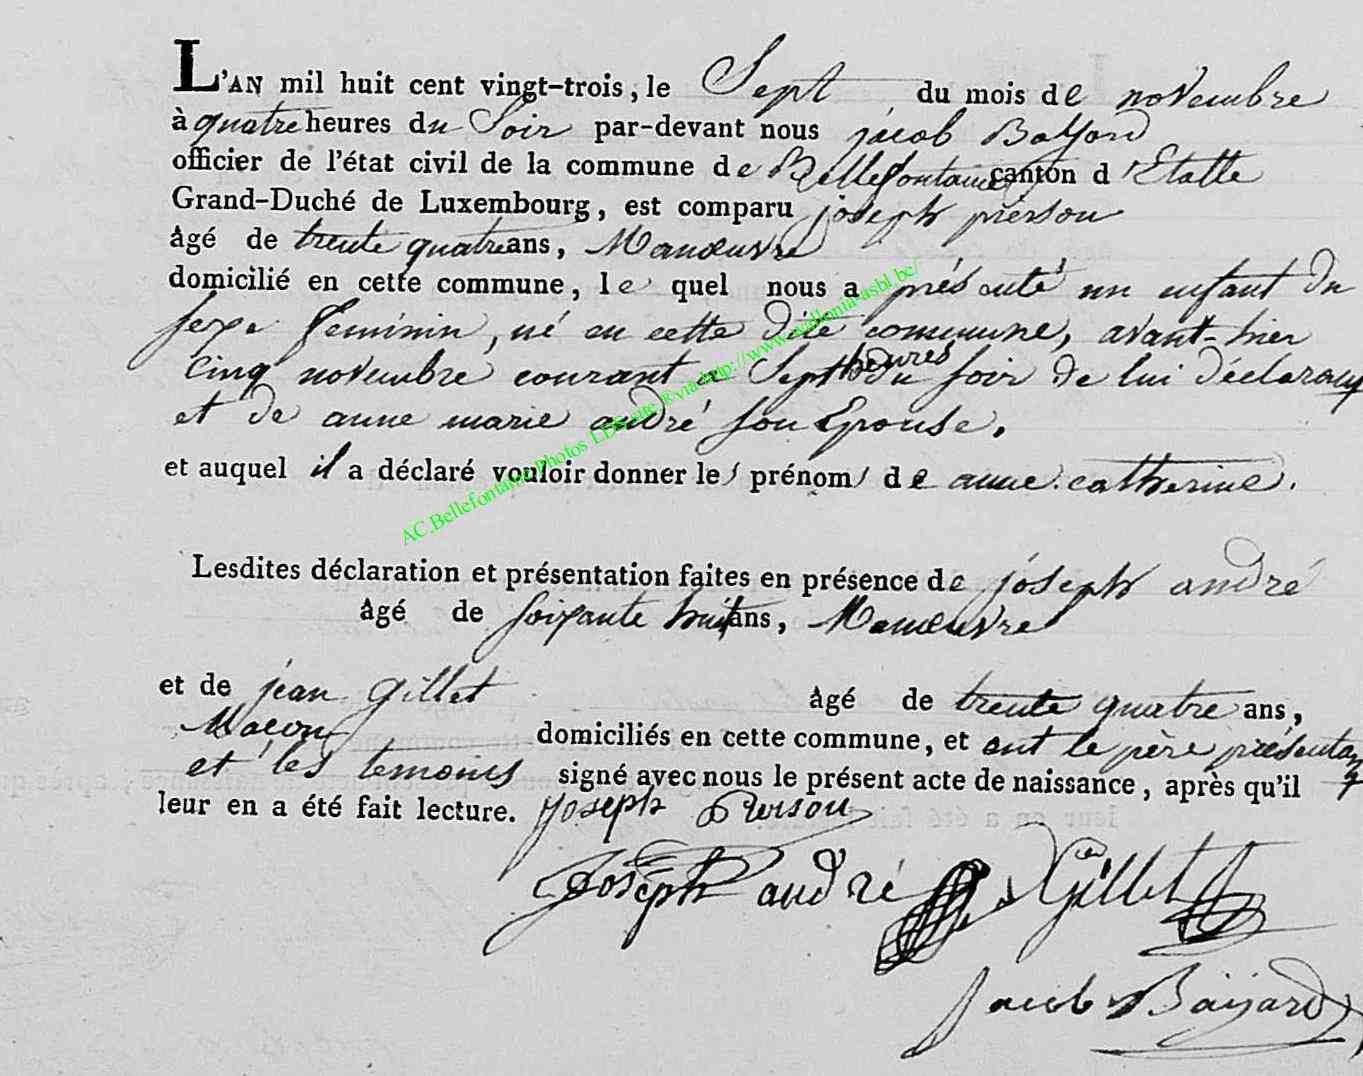 L'AN mil huit cent vingt-trois, le Sept du mois de novembre
à quatre heures du Soir par-devant nous jacob Bayard
officier de l'état civil de la commune de Bellefontaine canton d'Etalle
Grand-Duché de Luxembourg, est comparu joseph pierson
âgé de trente quatre ans, Manœuvre
domicilié en cette commune, le quel nous a présenté un enfant du
sexe féminin, né en cette dite commune, avant-hier
cinq novembre courant a Sept heures du soir de lui déclarant
et de anne marie andré son Epouse.
et auquel il a déclaré vouloir donner les prénoms de anne catherine.
AC.Bellefontaine Photos LDS via http://www.asbl.be/
Lesdites déclaration et présentation faites en présence de joseph andré
âgé de soixante huit ans, Manœuvre
et de jean gillet âgé de trente quatre ans,
Maçon domiciliés en cette commune, et ont le père présentant
et les temoins signé avec nous le présent acte de naissance, après qu'il
leur en a été fait lecture. Joseph Pierson
Joseph andré j Gillet
Jacob Baijard